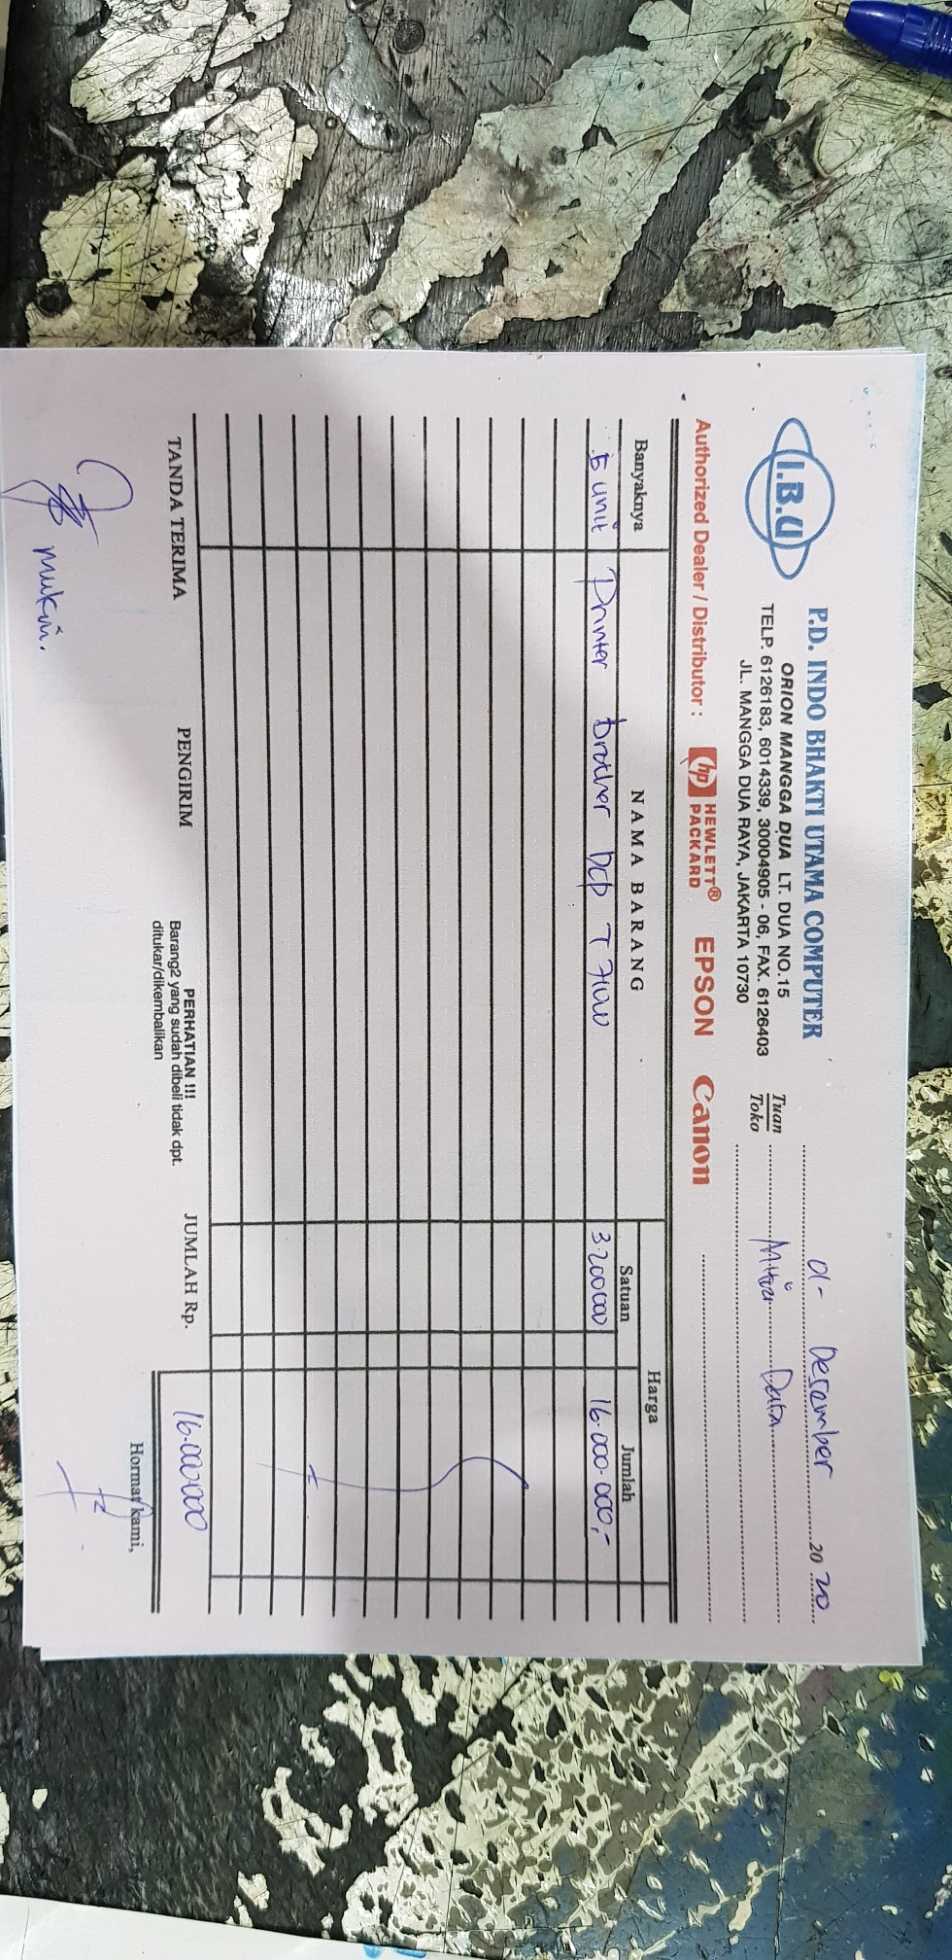 I.B.U
P.D. INDO BHAKTI UTAMA COMPUTER
ORION MANGGA DUA LT. DUA NO.15
TELP. 6126183, 6014339, 30004905 - 06, FAX. 6126403
JL. MANGGA DUA RAYA, JAKARTA 10730
01- Desember 2020
Tuan
Toko
Mitra Data
Authorized Dealer / Distributor :
hp HEWLETT®
PACKARD
EPSON
Canon
Banyaknya NAMA BARANG Harga
Satuan Jumlah
5 unit Printer brother Dcp T 710W 3.200.000 16.000.000,-
TANDA TERIMA PENGIRIM
PERHATIAN !!!
Barang2 yang sudah dibeli tidak dpt.
ditukar/dikembalikan
JUMLAH Rp. 16.000.000
Hormat kami,